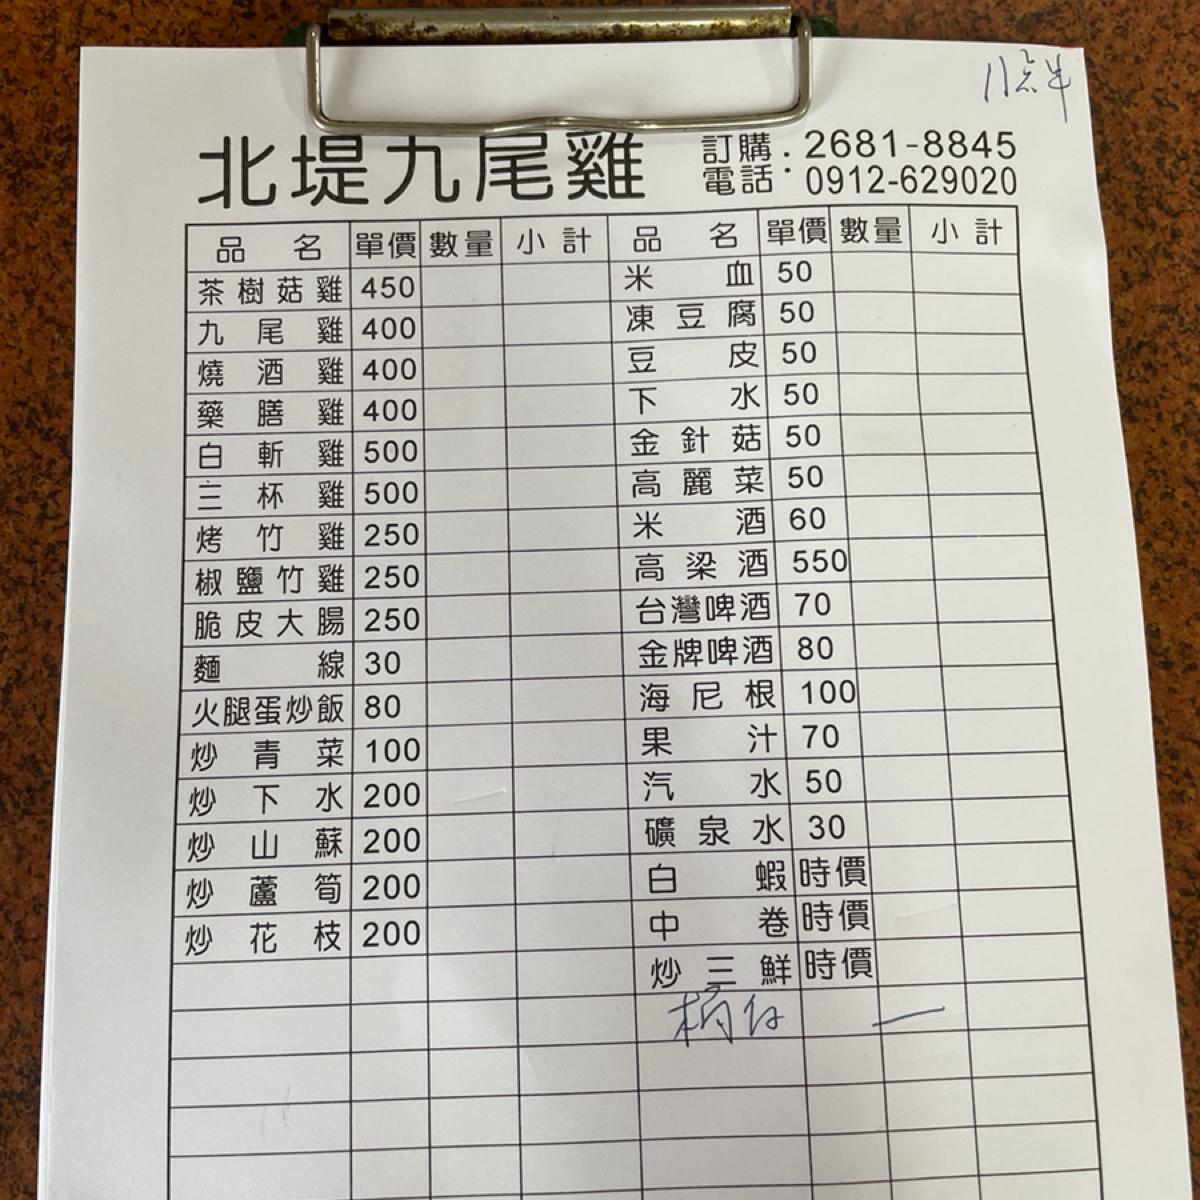 北堤九尾雞
訂購:2681-8845
電話:0912-629020
品名 單價 數量 小計 品名 單價 數量 小計
茶樹菇雞 450 米血 50
九尾雞 400 凍豆腐 50
燒酒雞 400 豆皮 50
藥膳雞 400 下水 50
白斬雞 500 金針菇 50
三杯雞 500 高麗菜 50
烤竹雞 250 米酒 60
椒鹽竹雞 250 高梁酒 550
脆皮大腸 250 台灣啤酒 70
麵線 30 金牌啤酒 80
火腿蛋炒飯 80 海尼根 100
炒青菜 100 果汁 70
炒下水 200 汽水 50
炒山蘇 200 礦泉水 30
炒蘆筍 200 白蝦 時價
炒花枝 200 中卷 時價
炒三鮮 時價